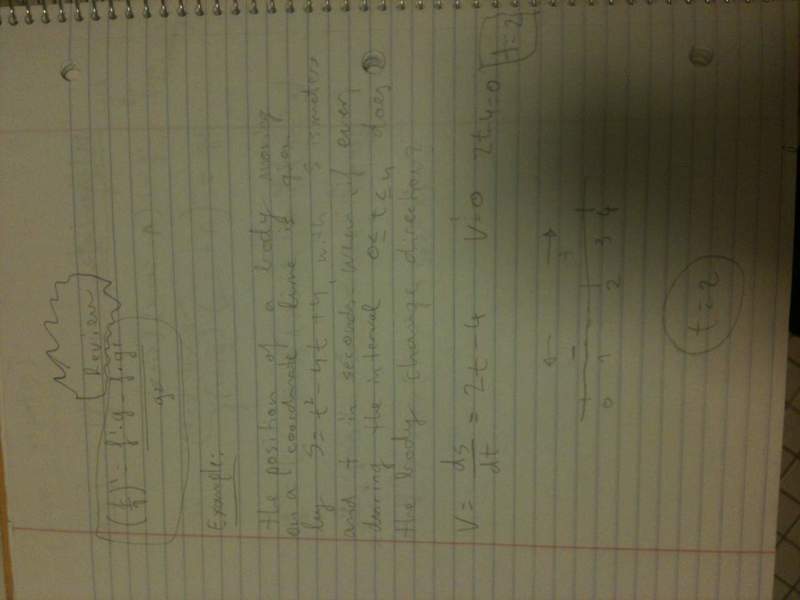 Review
(f/g)' = f'.g - f.g'
g²
Example:
The position of a body moving
on a coordinate line is given
by S = t² - 4t + 4, with s in meters
and t in seconds. When, if ever,
during the interval 0 ≤ t ≤ 4 does
the body change direction?
V = ds/dt = 2t - 4 V=0 2t-4=0 t=2
← →
- +
0 1 2 3 4
t = 2